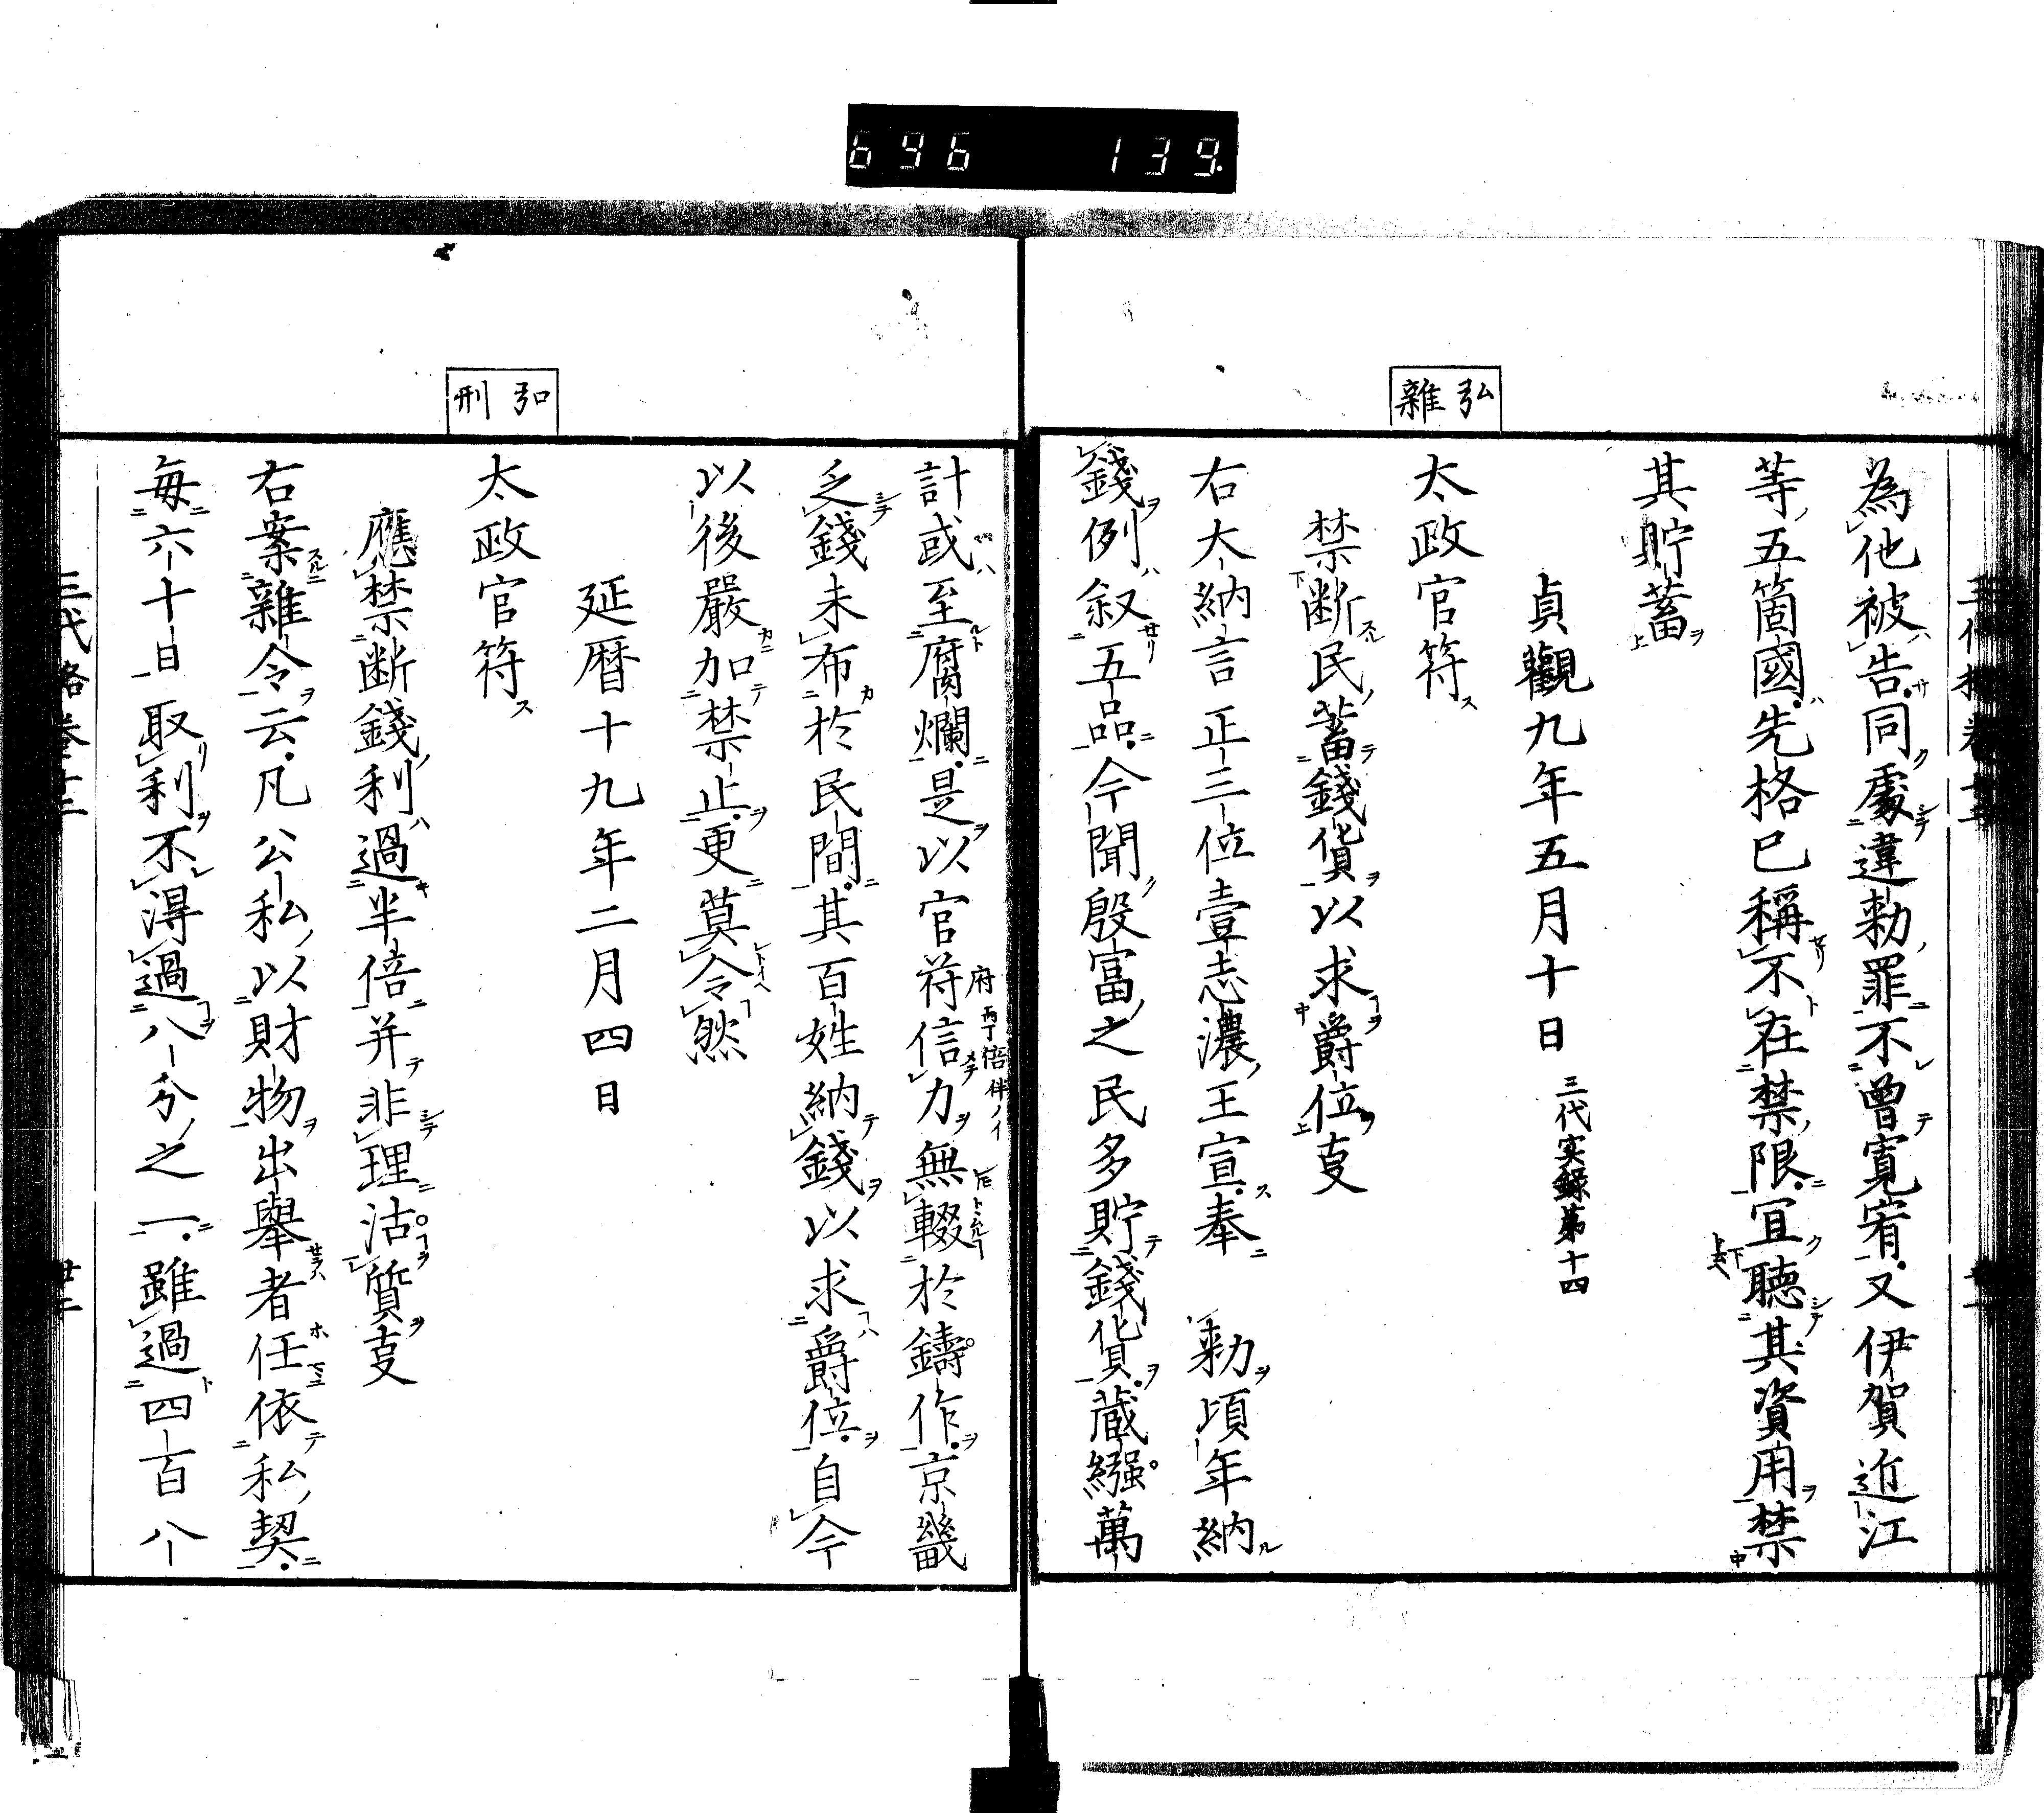 696 139
弘雜
為他被告同處違勅罪不曾寛宥又伊賀近江
等五箇國先格已稱不在禁限冝聴其資用禁
其貯蓄
貞觀九年五月十日 三代实録第十四
太政官符
禁断民蓄錢貨以求爵位㕝
右大納言正三位壹志濃王宣奉 勅頃年納
錢例叙五品今聞殷富之民多貯錢貨蔵繦萬
弘刑
計或至腐爛是以官符信力無輟於鑄作京畿
乏錢未布於民間其百姓納錢以求爵位自今
以後嚴加禁止更莫令然
延暦十九年二月四日
太政官符
應禁断錢利過半倍并非理沽質㕝
右案雜令云凡公私以財物出舉者任依私契
毎六十日取利不得過八分之一雖過四百八
三代格巻十二